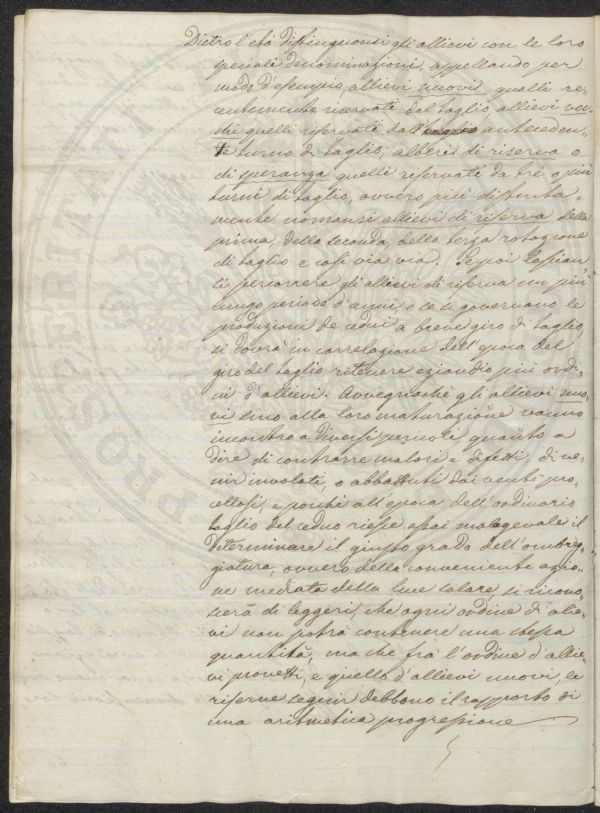 Dietro l'età distinguonsi gli allievi con le loro
speciali denominazioni, appellando per
modo d'esempio, allievi nuovi quelli re-
centemente riservati dal taglio allievi vec-
chi quelli riservati dall' anteceden-
te turno di taglio; alberi di riserva o
di speranza quelli riservati da tre o più
turni di taglio, ovvero più distinta-
mente nomansi allievi di riserva della
prima, della seconda, della terza rotazione
di taglio e così via via. Se poi lascian-
si percorrere gli allievi di riserva un più
lungo periodo d'anni o se si governano le
produzioni de cedui a breve giro di taglio,
si dovrà in correlazione dell'epoca del
giro del taglio ritenere eziandio più ordi-
ni d'allievi. Avvegnachè gli allievi nuo-
vi sino alla loro maturazione vanno
incontro a diversi pericoli, quanto a
dire di contrarre malori e difetti, di ve-
nir involati, o abbattuti dai venti pro-
cellosi, e poichè all'epoca dell'ordinario
taglio del ceduo riesce assai malagevole il
determinare il giusto grado dell'ombreg-
giatura, ovvero della conveniente azio-
ne mediata della luce solare, si ricono-
scerà di leggeri, che ogni ordine di allie-
vi non potrà contenere una stessa
quantità, ma che frà l'ordine d'allie-
vi provetti, e quello d'allievi nuovi, le
riserve seguir debbono il rapporto di
una aritmetica progressione
PROSPERITATI